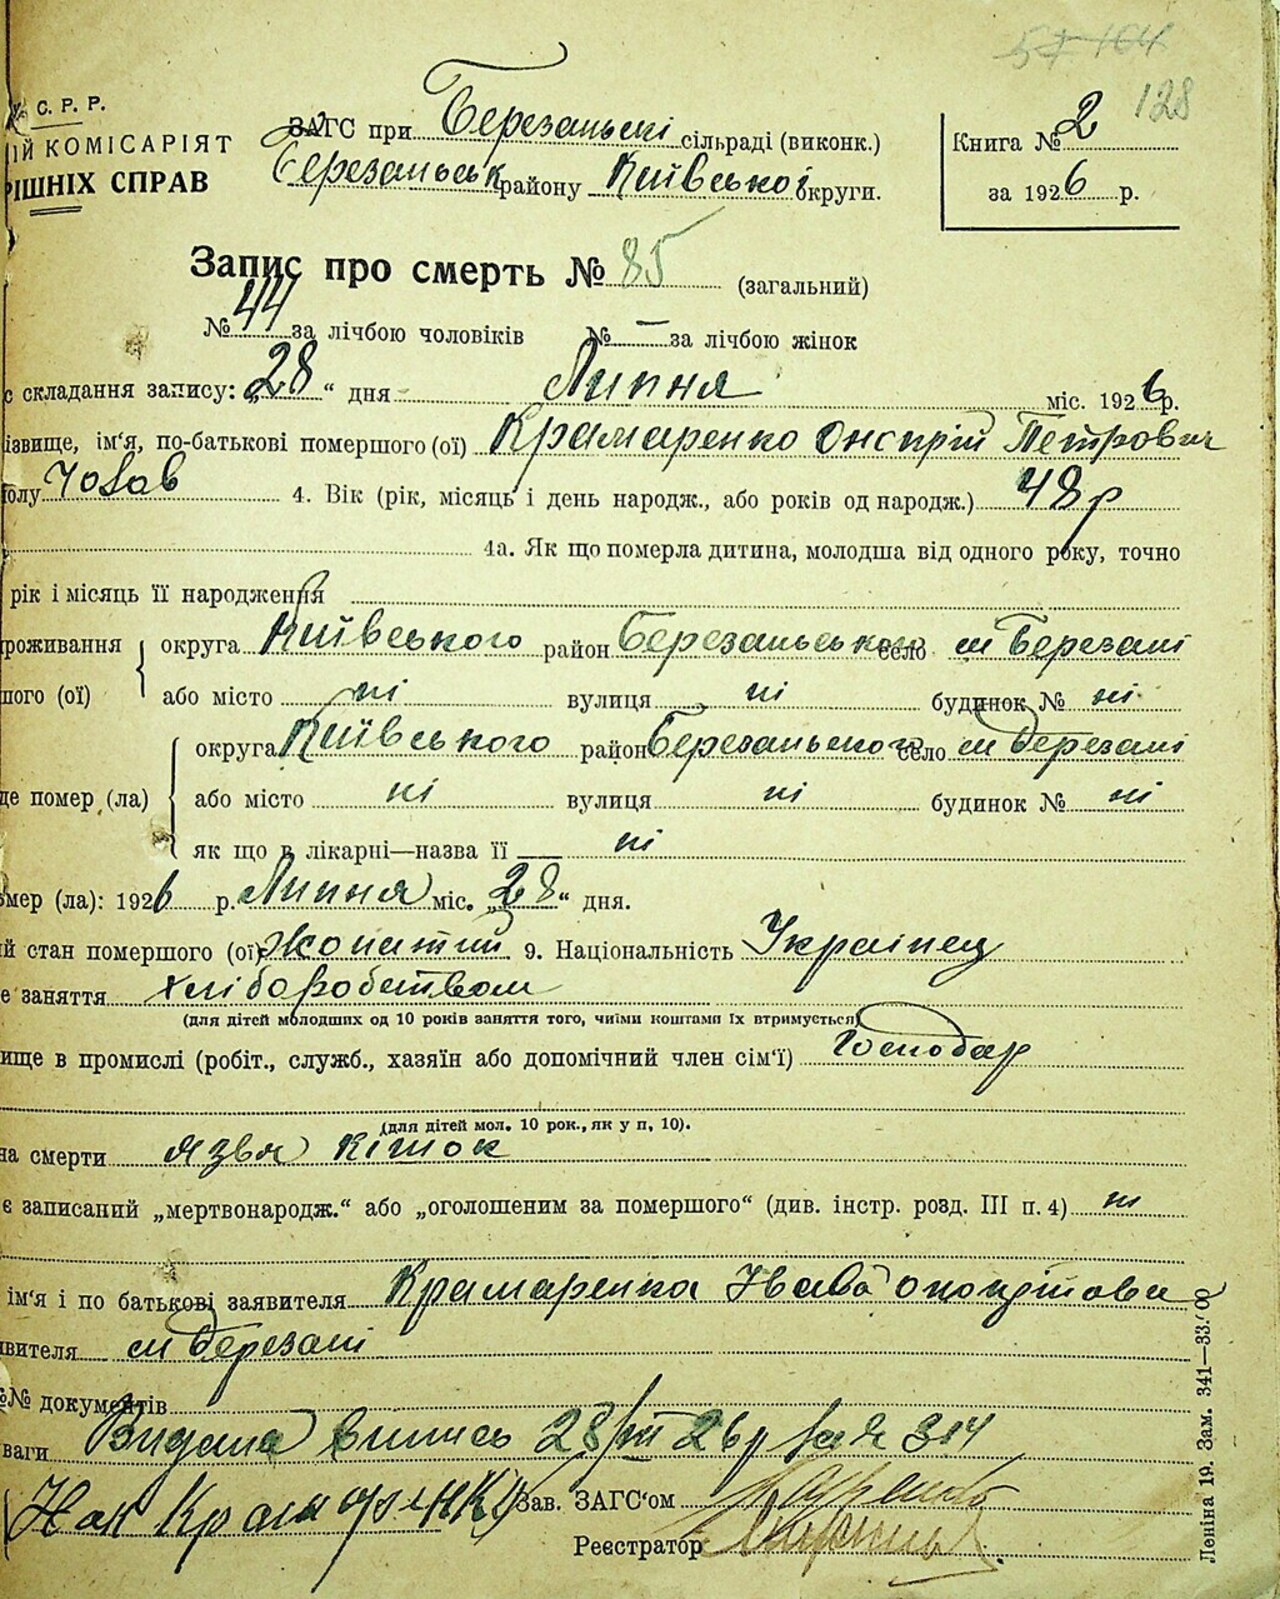 57 104
128
С. Р. Р.
ІЙ КОМІСАРІЯТ
РІШНІХ СПРАВ
ЗАГС при Березаньскі сільраді (виконк.)
Березанськ району Київської округи.
Книга № 2
за 1926 р.
Запис про смерть № 85 (загальний)
№ 44 за лічбою чоловіків № — за лічбою жінок
с складання запису: „28“ дня Липня міс. 1926 р.
ізвище, ім'я, по-батькові помершого (ої) Крамаренко Онопрій Петрович
полу Чолов 4. Вік (рік, місяць і день народж., або років од народж.) 48 р
4а. Як що померла дитина, молодша від одного року, точно
рік і місяць її народження
роживання округа Київського район Березанського село м Березані
шого (ої) або місто ні вулиця ні будинок № ні
округа Київського район Березанського село м Березані
де помер (ла) або місто ні вулиця ні будинок № ні
як що в лікарні—назва її ні
омер (ла): 1926 р. Липня міс. „28“ дня.
ий стан помершого (ої) Жонатий 9. Національність Українец
е заняття хліборобством
(для дітей молодших од 10 років заняття того, чиїми коштами їх втримується)
ище в промислі (робіт., служб., хазяїн або допомічний член сім'ї) Господар
(для дітей мол. 10 рок., як у п, 10).
на смерти язва кішок
є записаний „мертвонародж.“ або „оголошеним за помершого“ (див. інстр. розд. III п. 4) ні
ім'я і по батькові заявителя Крамаренка
явителя м Березані
№№ документів
ваги Видана випись 28/VII 26 р за № 314
Крамаренко Зав. ЗАГС'ом
Реєстратор
Леніна 19. Зам. 341—33.000